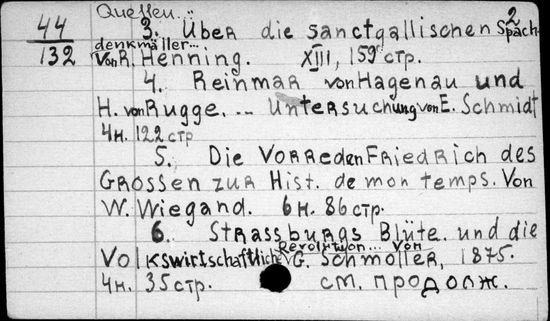 Quellen...
2
44
132
3. Über die sanctgallischen Spach-
denkmäller...
von R. Henning. XIII, 159 стр.
4. Reinmar von Hagenau und
H. von Rugge. ... Untersuchung von E. Schmidt
4н. 122 стр
5. Die Vorreden Friedrich des
Grossen zur Hist. de mon temps. Von
W. Wiegand. 6н. 86 стр.
6. Strassburgs Blüte und die
Volkswirtschaftliche Revolution... Von G. Schmoller, 1875.
4н. 35 стр. см. продолж.